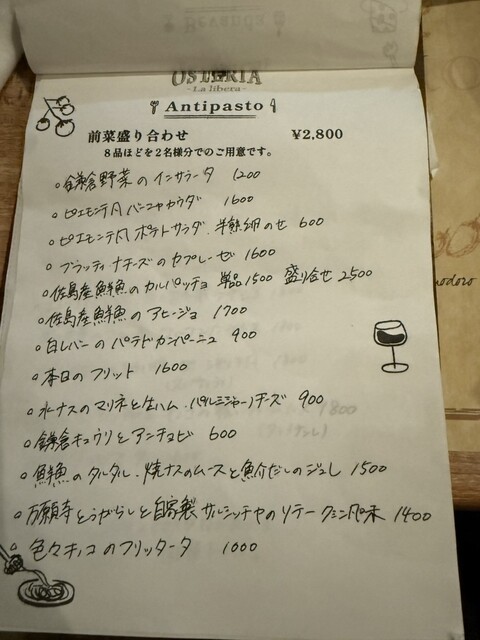 OSTERIA
-La libera-
Antipasto
前菜盛り合わせ ¥2,800
8品ほどを2名様分でのご用意です。
○鎌倉野菜のインサラータ 1200
○ピエモンテ風バーニャカウダ 1600
○ピエモンテ風ポテトサラダ.半熟卵のせ 600
○ブラッティーナチーズのカプレーゼ 1600
○佐島産鮮魚のカルパッチョ 単品1500 盛り合せ2500
○佐島産鮮魚のアヒージョ 1700
○白レバーのパテドカンパーニュ 900
○本日のフリット 1600
○水ナスのマリネと生ハム.パルミジャーノチーズ 900
○鎌倉キュウリとアンチョビ 600
○鮮魚のタルタル.焼ナスのムースと魚介だしのジュレ 1500
○万願寺とうがらしと自家製サルシッチャのソテー クミン風味 1400
○色々キノコのフリッタータ 1000